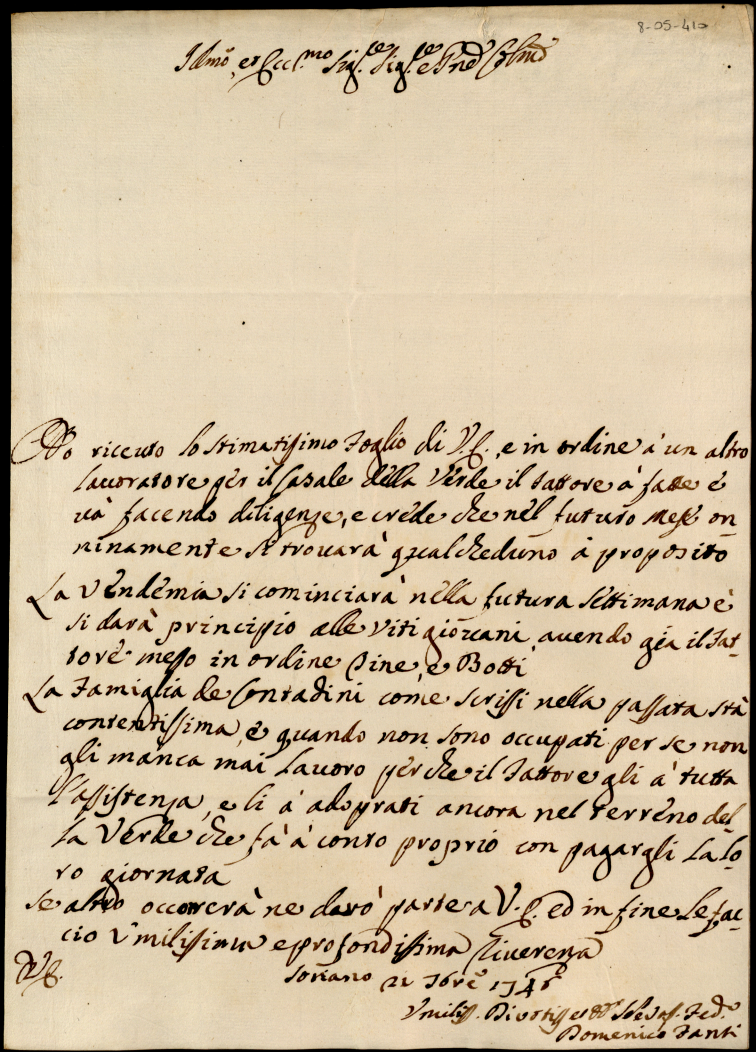 8-05-410
Illmo, et Ecc.mo Sig.re Sig.re e Pne Colmo
Ho riceuto lo stimatissimo Foglio di V.E., e in ordine à un altro
lauoratore per il Casale della Verde il Fattore à fatte e
uà facendo diligenze, e crede che nel futuro Mese on-
ninamente si trouarà qualcheduno à proposito
La Vendemia si cominciarà nella futura settimana e
si darà principio alle Viti giouani, auendo già il Fat-
tore messo in ordine Tine, e Botti
La Famiglia de Contadini come scrissi nella passata stà
contentissima, e quando non sono occupati per se non
gli manca mai Lauoro perche il Fattore gli à tutta
l'assistenza, e li à adoprati ancora nel terreno del-
la Verde che fà à conto proprio con pagargli la lo-
ro giornata
Se altro occorrerà ne darò parte a V.E. ed in fine le fac-
cio Vmilissima e profondissima riuerenza
D V.E.
Soriano 21 7bre 1746
Vmiliss. Diuotiss et Fed.
Domenico Fanti